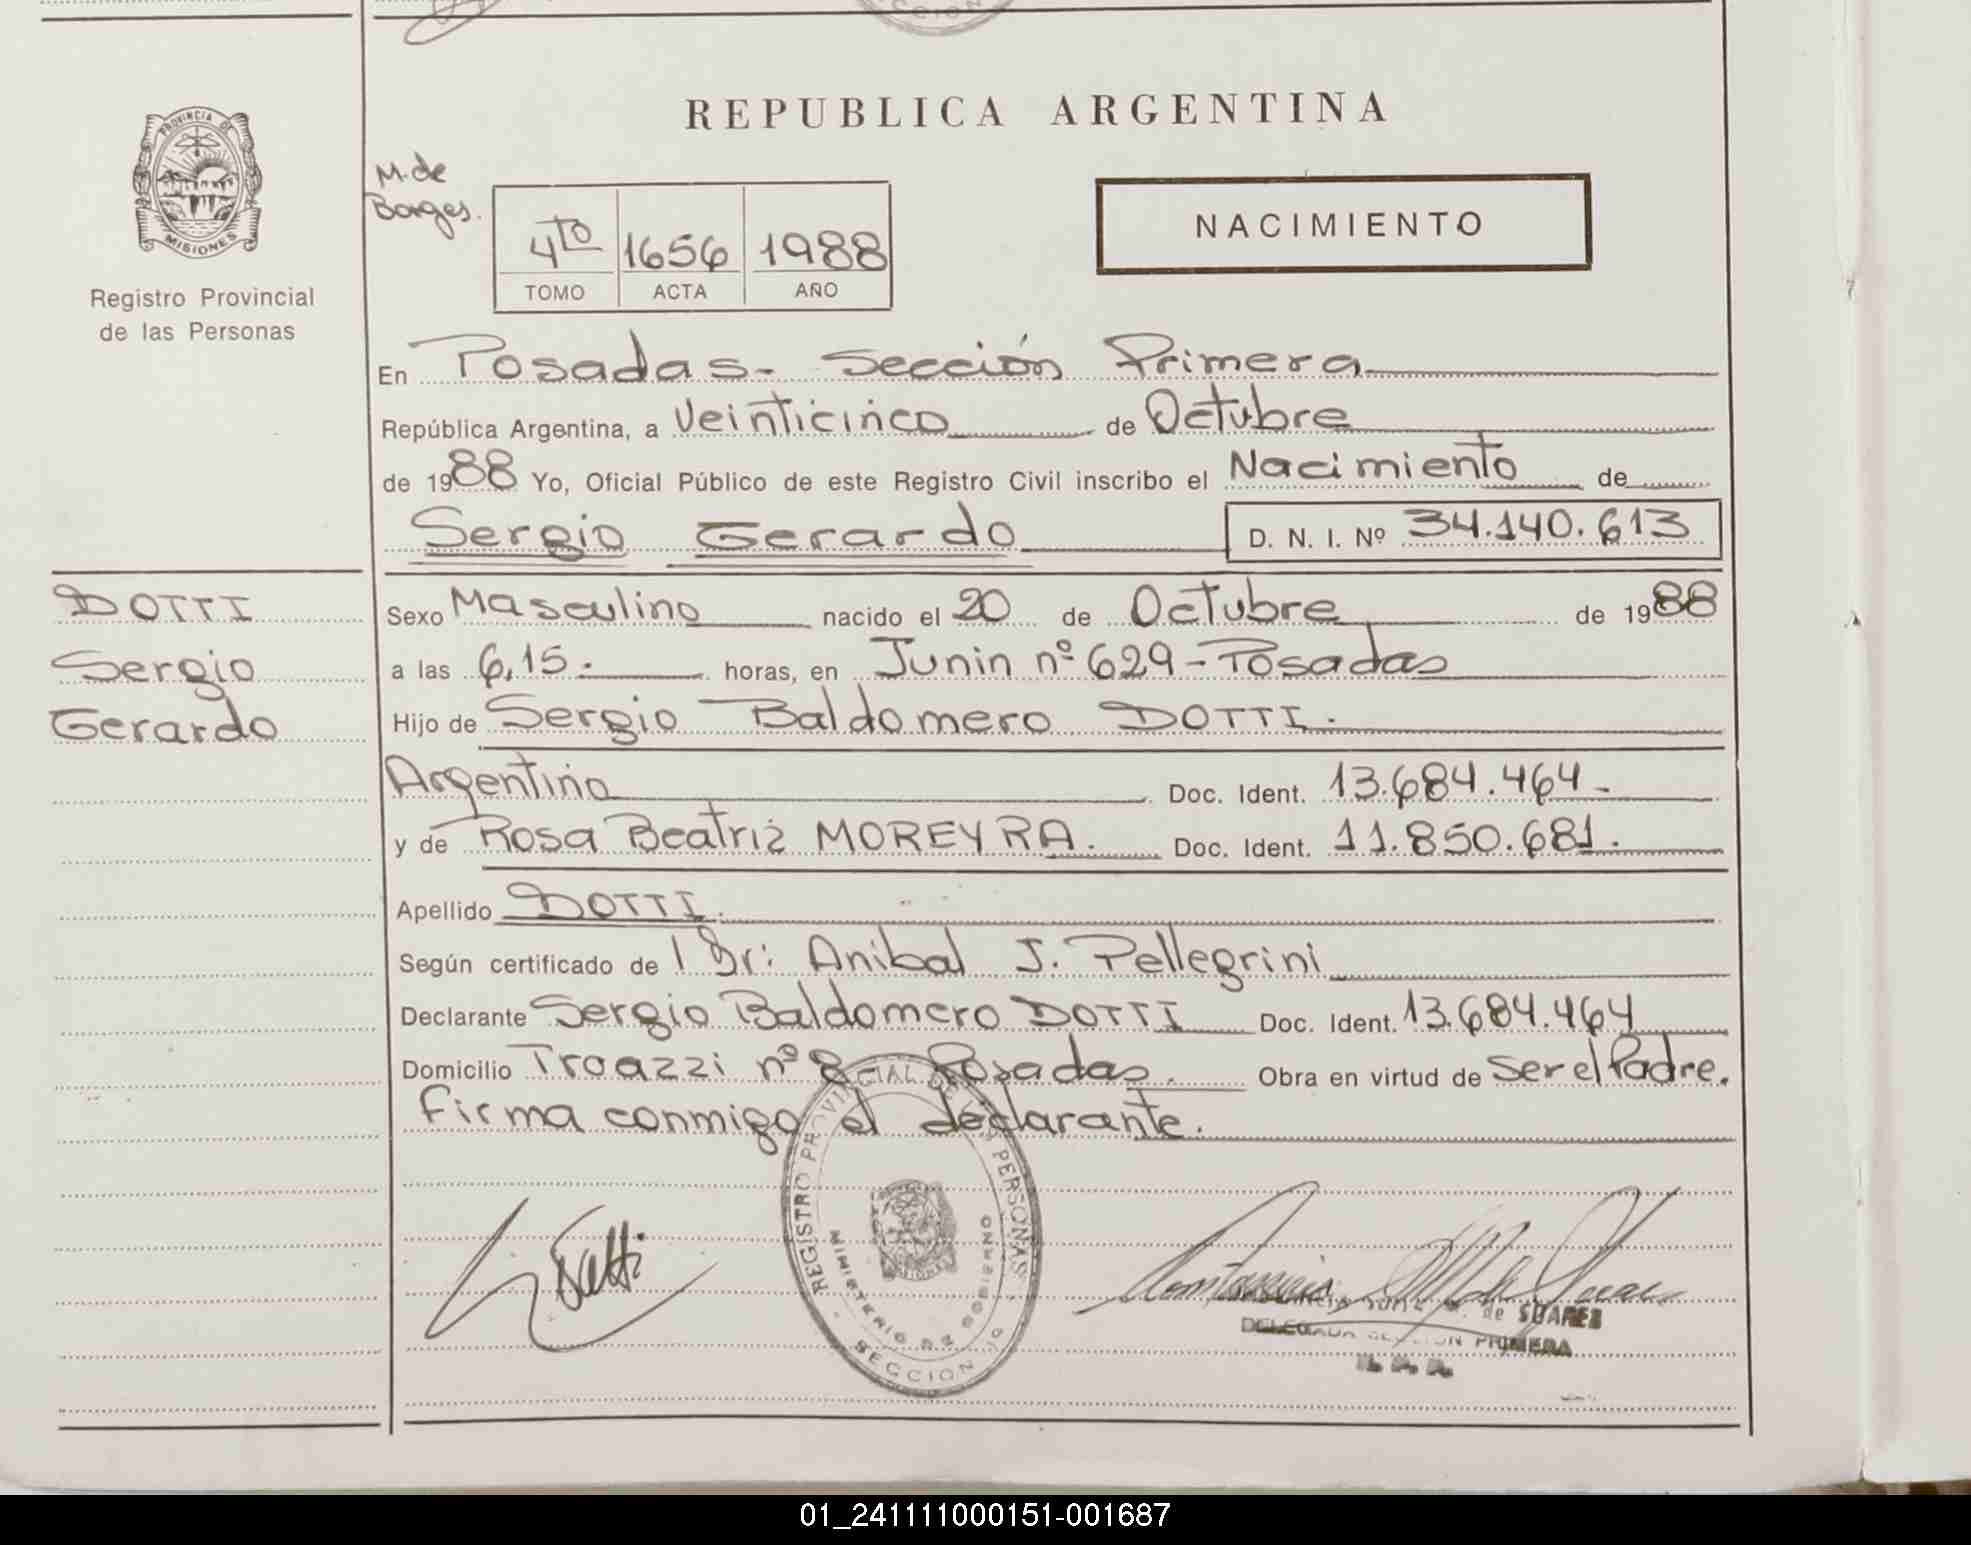 REPUBLICA ARGENTINA
PROVINCIA DE
MISIONES
Registro Provincial
de las Personas
M. de
Borges.
4to 1656 1988
TOMO ACTA AÑO
NACIMIENTO
En Posadas - Sección Primera
República Argentina, a Veinticinco de Octubre
de 1988 Yo, Oficial Público de este Registro Civil inscribo el Nacimiento de
Sergio Gerardo D. N. I. Nº 34.140.613
DOTTI
Sergio
Gerardo
Sexo Masculino nacido el 20 de Octubre de 1988
a las 6,15. horas, en Junin nº 629 - Posadas
Hijo de Sergio Baldomero DOTTI.
Argentino Doc. Ident. 13.684.464.-
y de Rosa Beatriz MOREYRA. Doc. Ident. 11.850.681.
Apellido DOTTI.
Según certificado de l Dr: Anibal J. Pellegrini
Declarante Sergio Baldomero DOTTI Doc. Ident. 13.684.464
Domicilio Troazzi nº 8 - Posadas. Obra en virtud de Ser el Padre.
Firma conmigo el declarante.
REGISTRO PROVINCIAL DE LAS PERSONAS
MINISTERIO DE GOBIERNO
MISIONES
SECCION 1º
Dotti
de SUAREZ
DELEGADA SECCION PRIMERA
R. P. P.
01_241111000151-001687